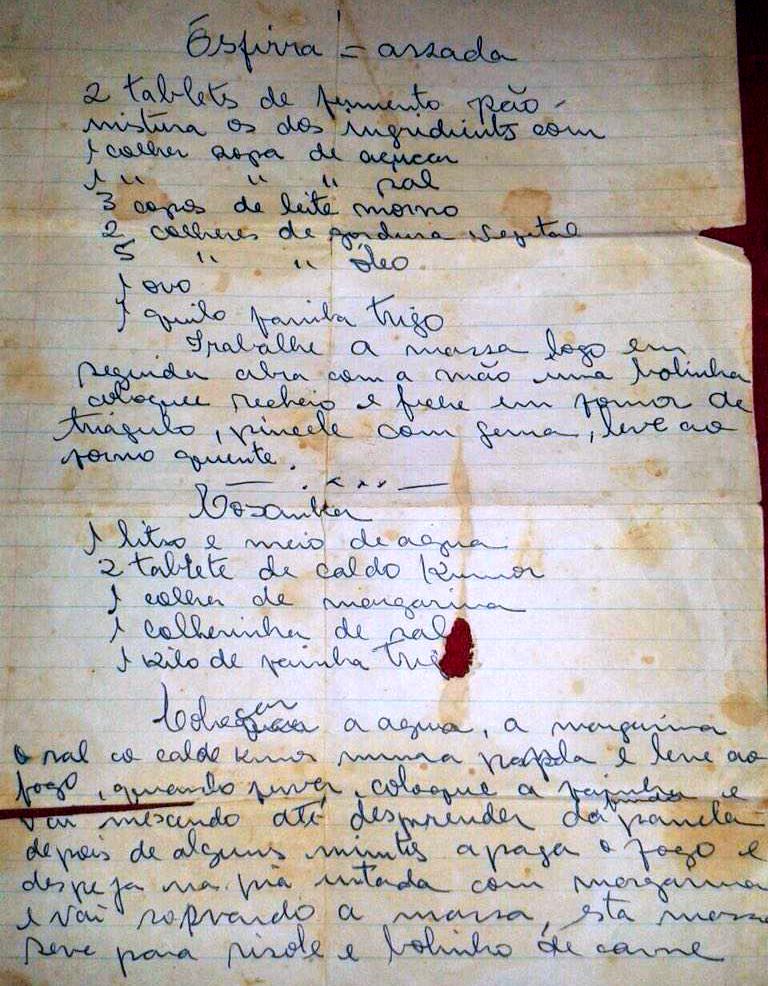 Esfirra = assada
2 tablets de fermento pão
mistura os dos ingridients com
1 colher sopa de açucar
1 " " " sal
3 copos de leite morno
2 colheres de gordura vegetal
5 " " óleo
1 ovo
1 quilo farinha trigo
Trabalhe a massa logo em
seguida abra com a mão uma bolinha
coloque recheio e feche em forma de
triágulo, pincele com gema, leve ao
forno quente.
Coxinha
1 litro e meio de agua
2 tablete de caldo Kinor
1 colher de margarina
1 colherinha de sal
1 kilo de farinha
a agua, a margarina
o sal co caldo kinor numa e leve ao
fogo, quando ferver, coloque a farinha e
vai mexendo até desprender da panela
depois de alguns minutos apaga o fogo e
despeja na pia untada com margarina
e vai sovando a massa, esta massa
serve para risole e bolinho de carne